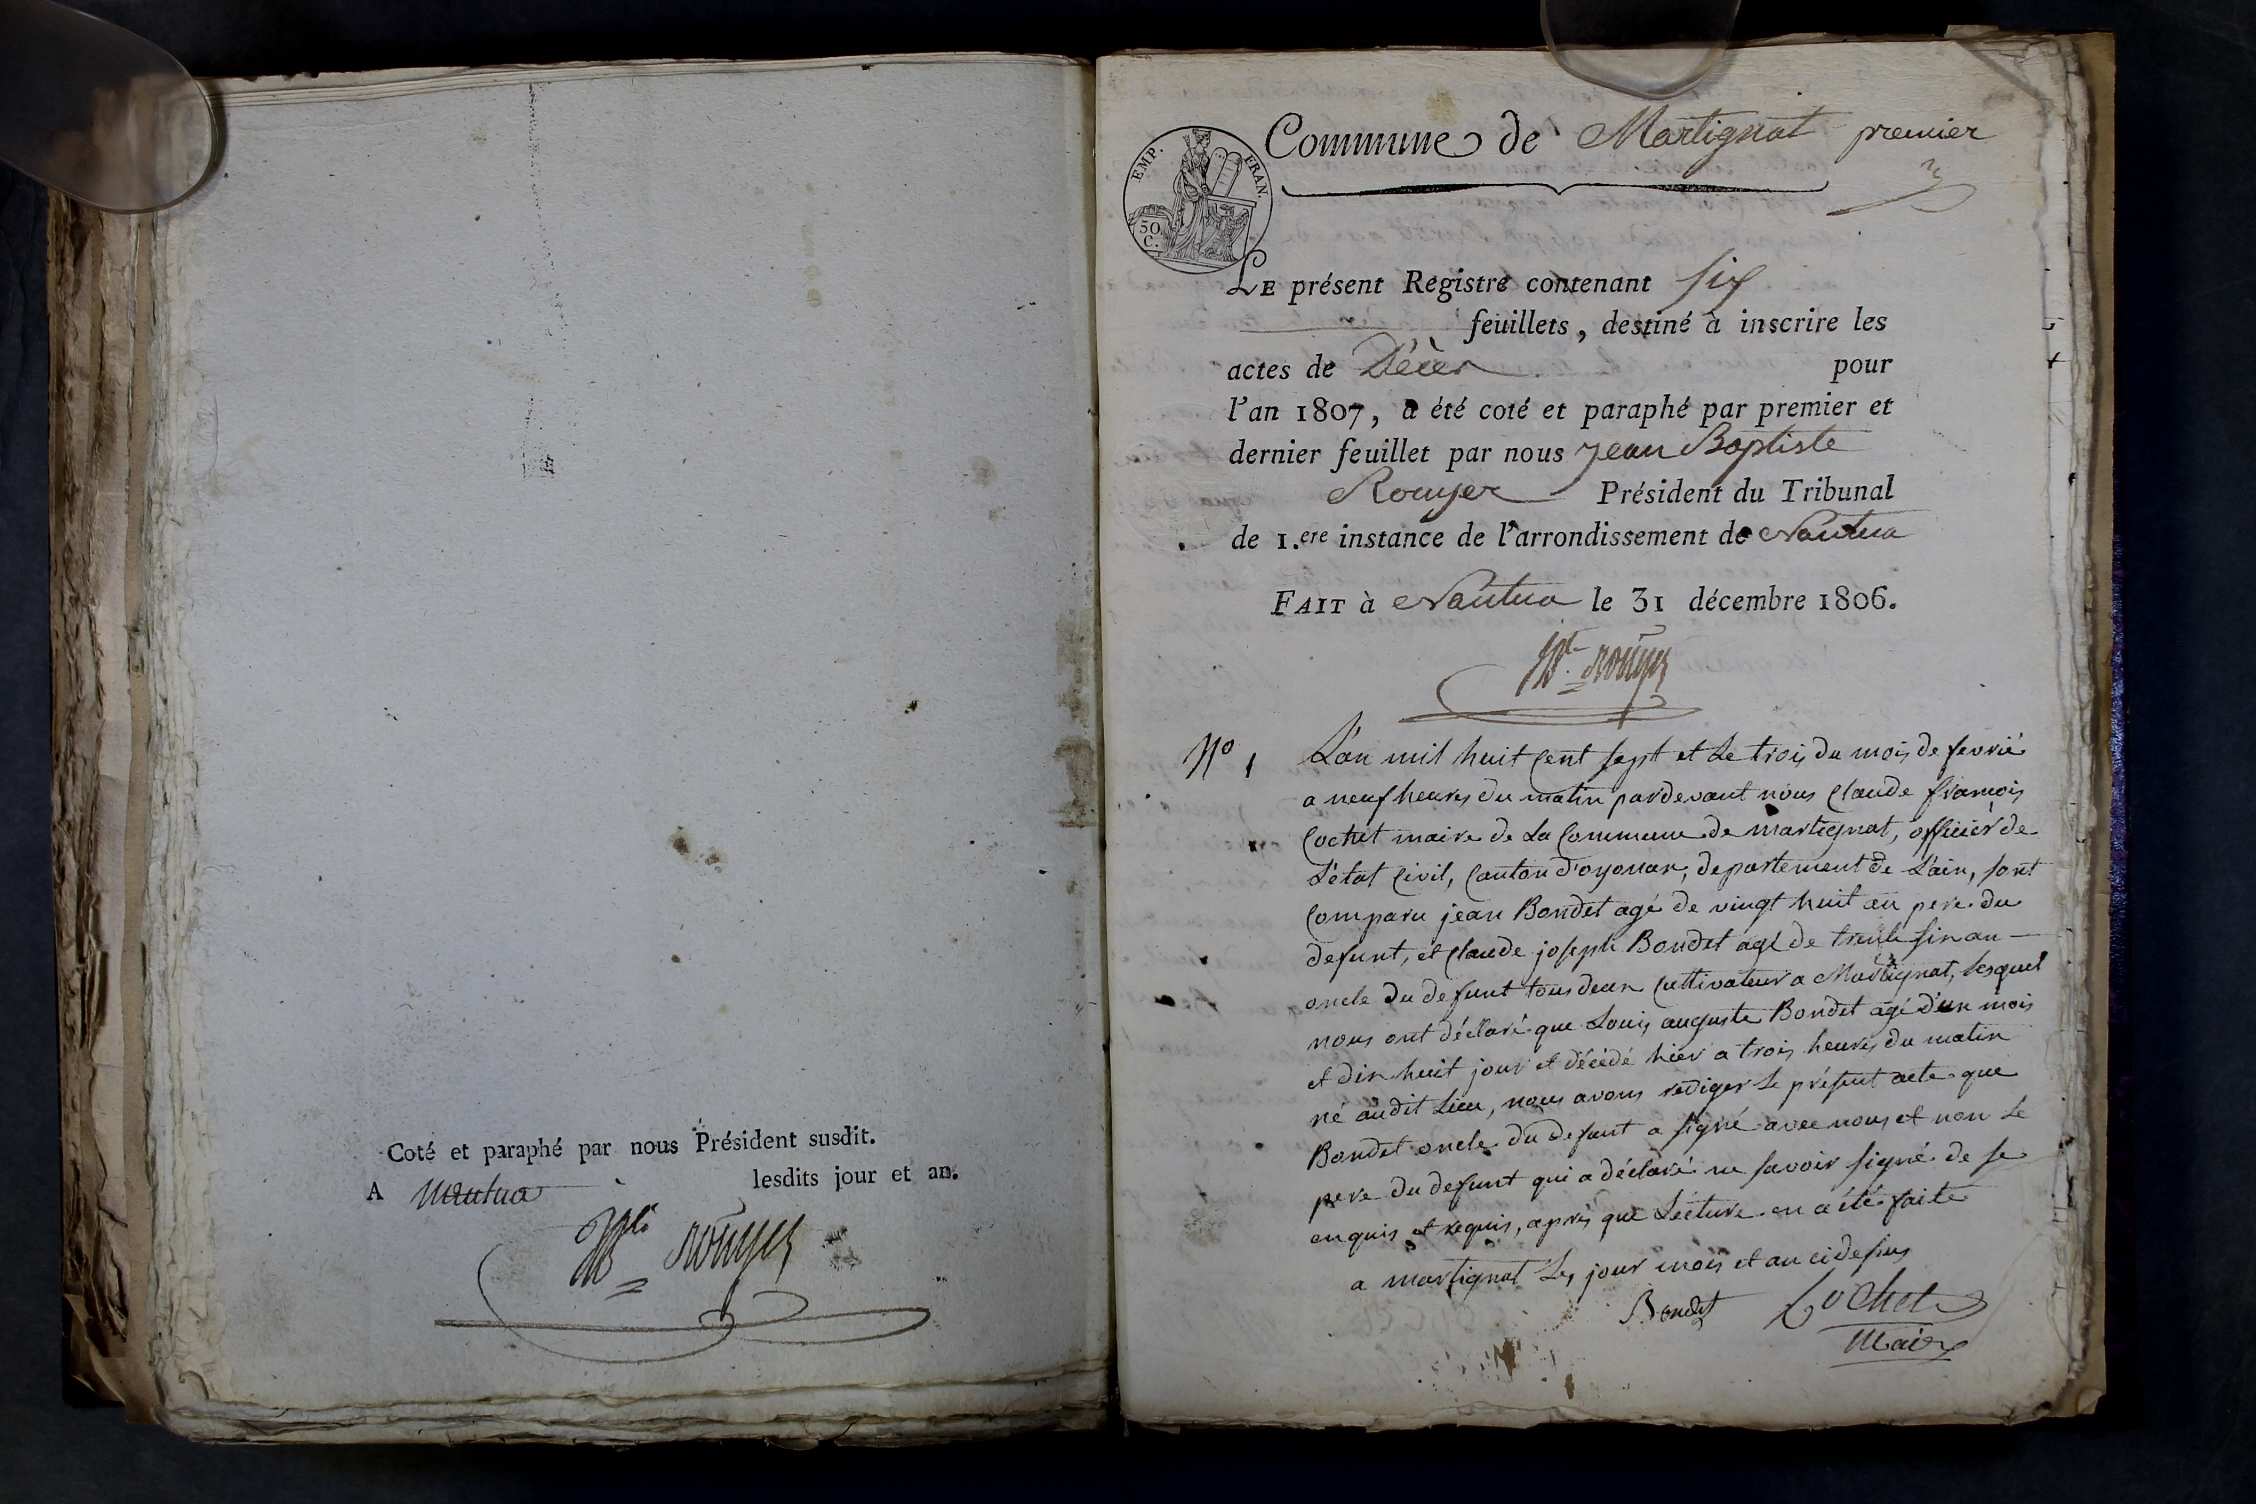 Coté et paraphé par nous Président susdit.
A Nantua lesdits jour et an.
JBte Rouyer
EMP. FRAN.
50 C.
Commune de Martignat premier
LE présent Registre contenant six
feuillets, destiné à inscrire les
actes de Décès pour
l'an 1807, a été coté et paraphé par premier et
dernier feuillet par nous Jean Baptiste
Rouyer Président du Tribunal
de 1.ere instance de l'arrondissement de Nantua
FAIT à Nantua le 31 décembre 1806.
JBte Rouyer
No 1
L'an mil huit cent sept et le trois du mois de fevrié
a neuf heures du matin pardevant nous Claude françois
Cochet maire de la Commune de martignat, officier de
L'état Civil, Canton d'oyonax, departement de L'ain, sont
Comparu jean Bondet agé de vingt huit an pere du
defunt, et Claude joseph Bondet agé de trente six an
oncle du defunt tous deux Cultivateur a Martignat, lesquel
nous ont déclaré que Louis auguste Bondet agé d'un mois
et dix huit jour et décédé hier a trois heures du matin
né audit Lieu, nous avons rediger le présent acte que
Bondet oncle du defunt a signé avec nous et non le
pere du defunt qui a déclaré ne savoir signé de se
enquis et requis, après que Lécture en a été faite
a martignat les jour mois et an cidesus
Bondet Cochet
Maire